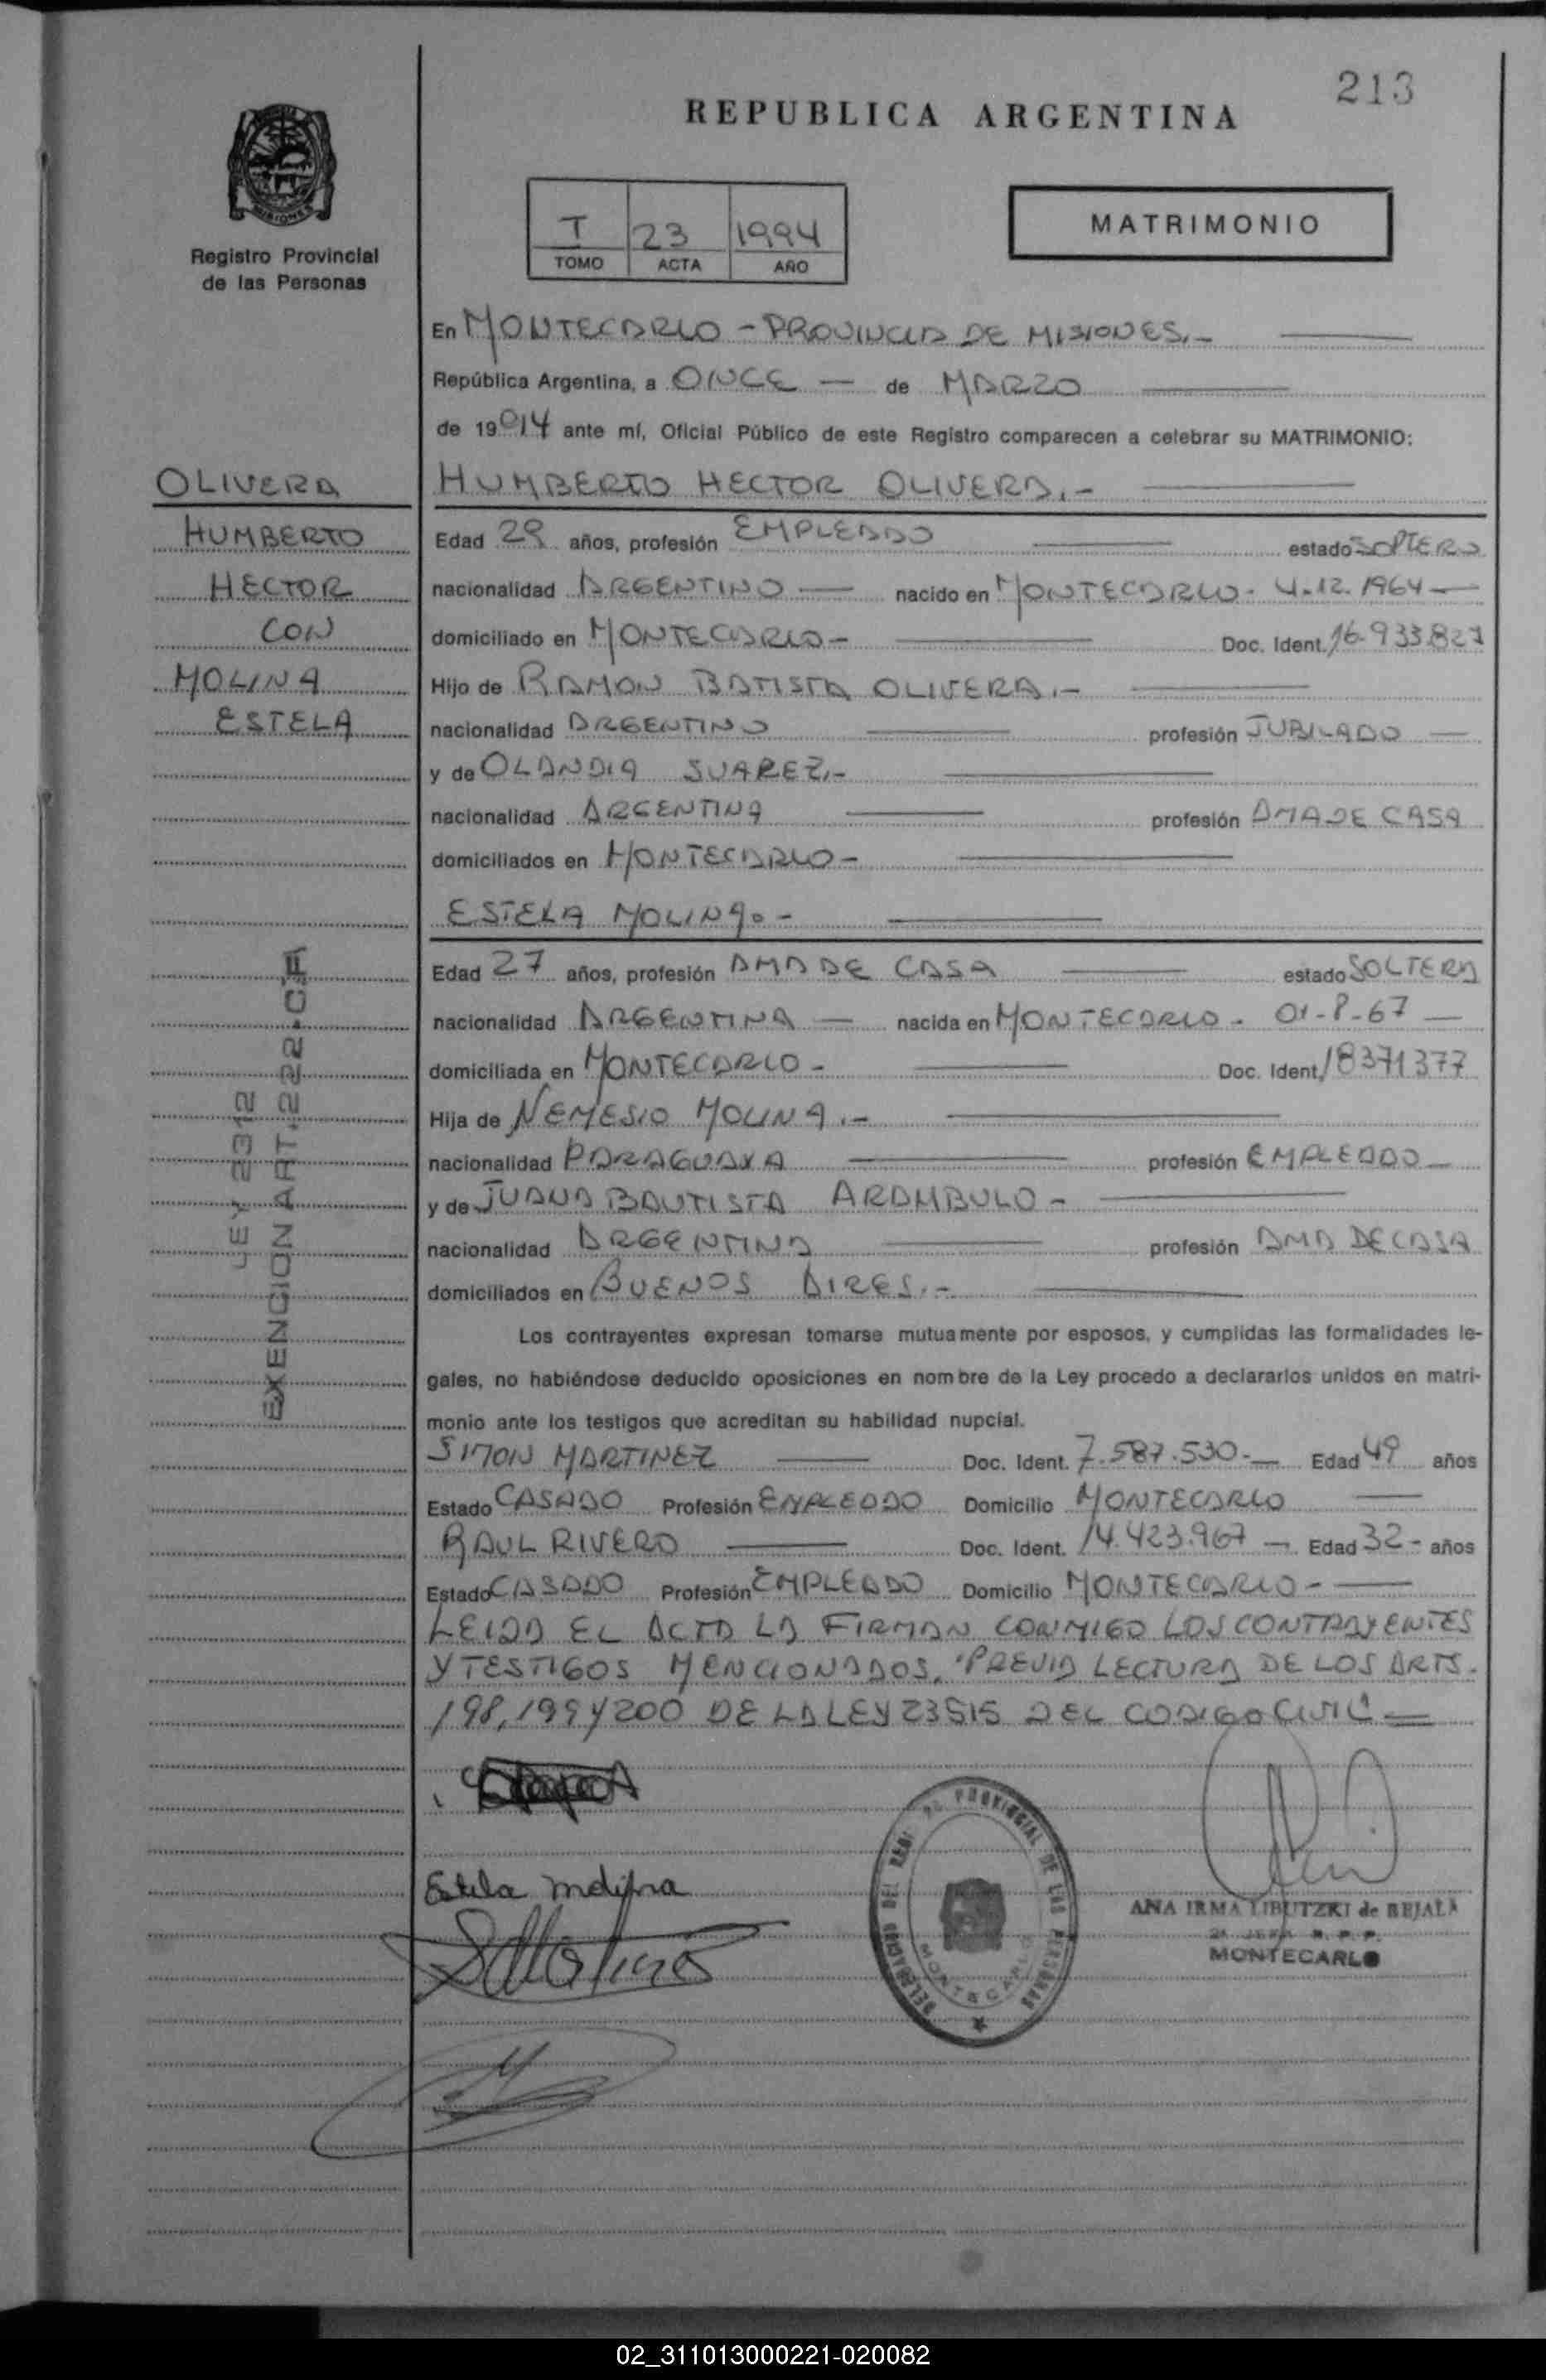 213
REPUBLICA ARGENTINA
MISIONES
Registro Provincial
de las Personas
T 23 1994
TOMO ACTA AÑO
MATRIMONIO
En MONTECARLO - PROVINCIA DE MISIONES.-
República Argentina, a ONCE — de MARZO
de 1994 ante mí, Oficial Público de este Registro comparecen a celebrar su MATRIMONIO:
OLIVERA
HUMBERTO
HECTOR
CON
MOLINA
ESTELA
LEY 2312
EXENCION ART. 222.C.F
HUMBERTO HECTOR OLIVERA.-
Edad 29 años, profesión EMPLEADO estado SOLTERO
nacionalidad ARGENTINO — nacido en MONTECARLO - 4.12.1964 —
domiciliado en MONTECARLO - Doc. Ident. 16.933.827
Hijo de RAMON BATISTA OLIVERA.-
nacionalidad ARGENTINO profesión JUBILADO —
y de OLANDIA SUAREZ.-
nacionalidad ARGENTINA profesión AMA DE CASA
domiciliados en MONTECARLO -
ESTELA MOLINA.-
Edad 27 años, profesión AMA DE CASA estado SOLTERA
nacionalidad ARGENTINA — nacida en MONTECARLO - 01-8-67 —
domiciliada en MONTECARLO - Doc. Ident. 18371377
Hija de NEMESIO MOLINA.-
nacionalidad PARAGUAYA profesión EMPLEADO —
y de JUANA BAUTISTA ARAMBULO -
nacionalidad ARGENTINA profesión AMA DE CASA
domiciliados en BUENOS AIRES.-
Los contrayentes expresan tomarse mutuamente por esposos, y cumplidas las formalidades le-
gales, no habiéndose deducido oposiciones en nombre de la Ley procedo a declararlos unidos en matri-
monio ante los testigos que acreditan su habilidad nupcial.
SIMON MARTINEZ Doc. Ident. 7.587.530.- Edad 49 años
Estado CASADO Profesión EMPLEADO Domicilio MONTECARLO
RAUL RIVERO Doc. Ident. 14.423.967 — Edad 32 - años
Estado CASADO Profesión EMPLEADO Domicilio MONTECARLO -
LEIDA EL ACTA LA FIRMAN CONMIGO LOS CONTRAYENTES
Y TESTIGOS MENCIONADOS, PREVIA LECTURA DE LOS ARTS.
198, 199 Y 200 DE LA LEY 23515 DEL CODIGO CIVIL
Estela molina
DELEGACION DEL REG. PROVINCIAL DE LAS PERSONAS
MONTECARLO
ANA IRMA LIBUTZKI de BEJALA
MONTECARLO
02_311013000221-020082